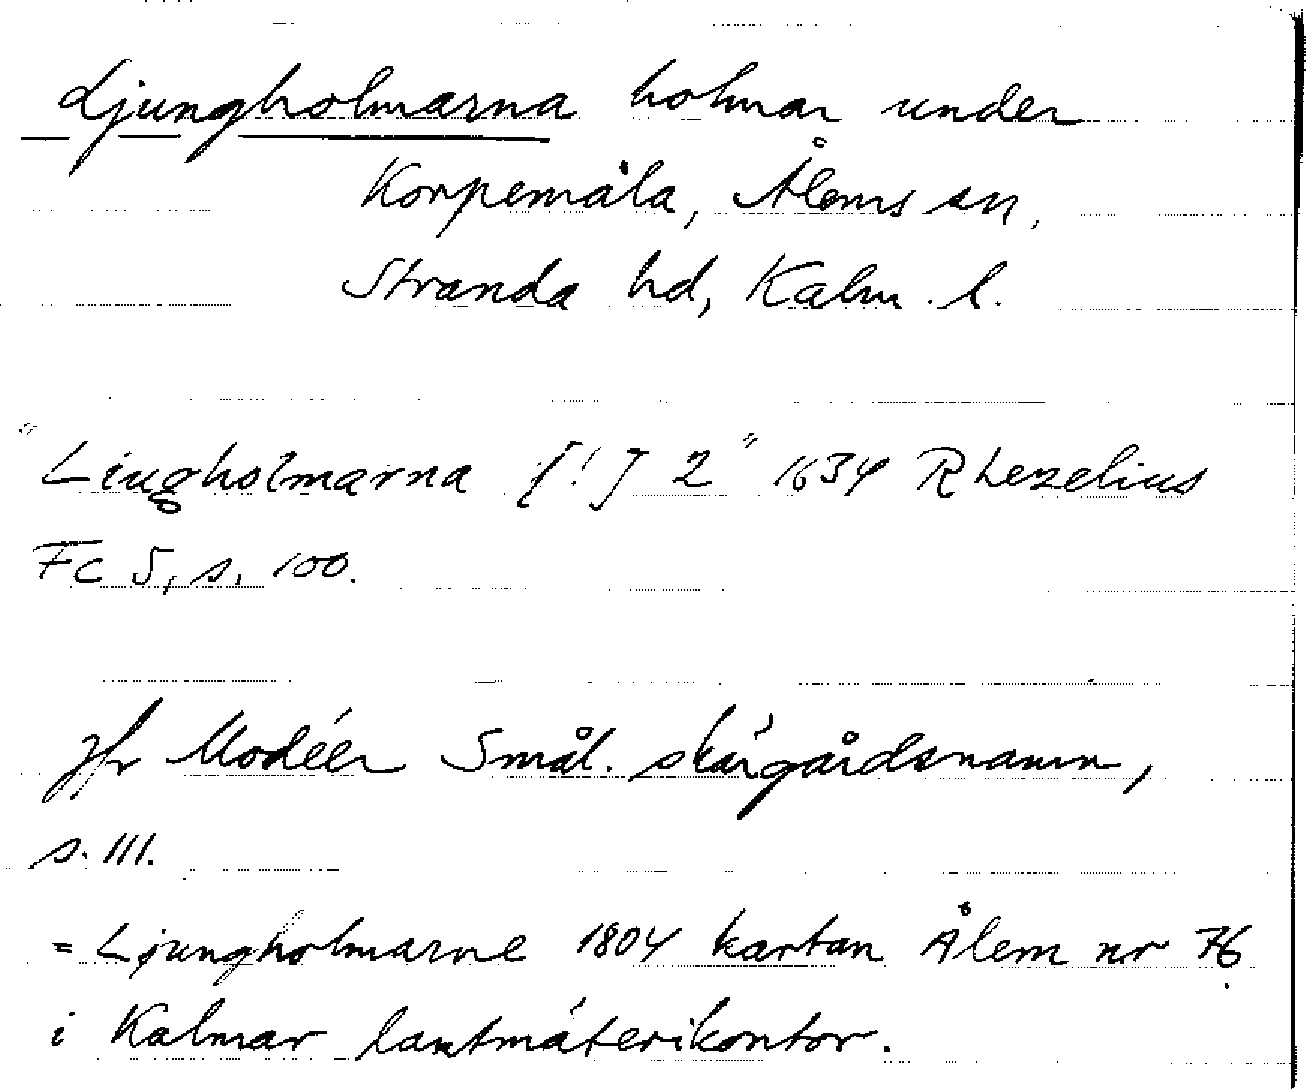 Ljungholmarna holmar under
Korpemåla, Ålems sn,
Stranda hd, Kalm. l.
"Liugholmarna [!] 2" 1634 Rhezelius
Fc 5, s. 100.
jfr Modéer Smål. skärgårdsnamn,
s. 111.
= Ljungholmarne 1804 kartan Ålem nr 76
i Kalmar lantmäterikontor.